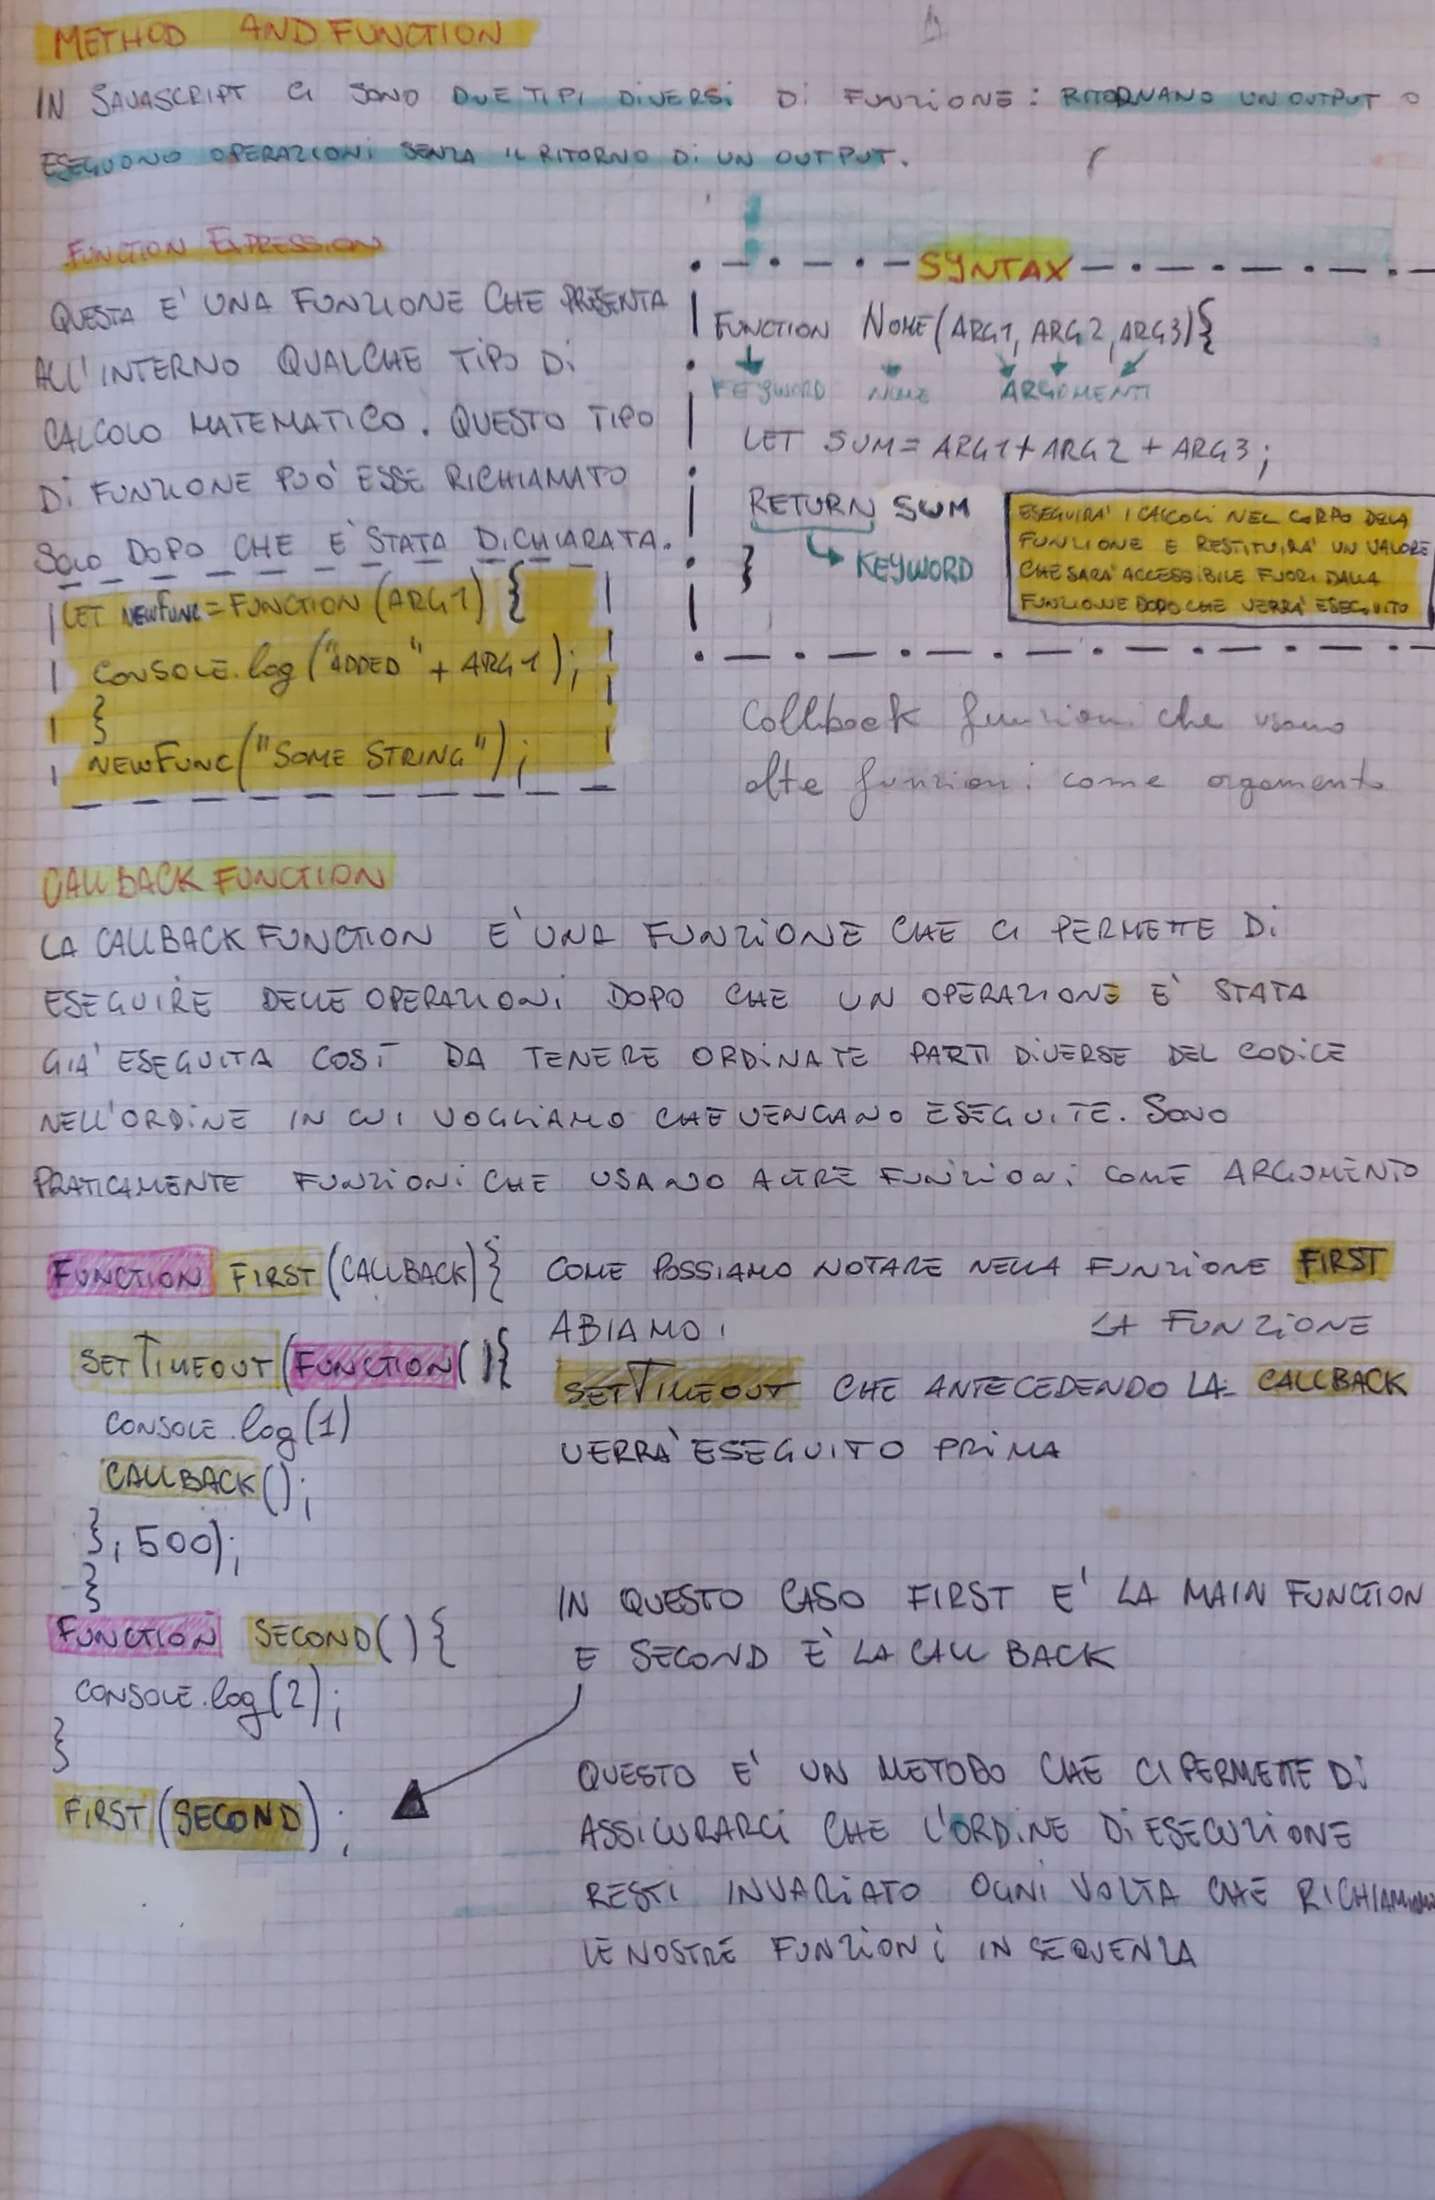 METHOD AND FUNCTION
IN JAVASCRIPT CI SONO DUE TIPI DIVERSI DI FUNZIONE: RITORNANO UN OUTPUT O
ESEGUONO OPERAZIONI SENZA IL RITORNO DI UN OUTPUT.
FUNCTION EXPRESSION
QUESTA E' UNA FUNZIONE CHE PRESENTA
ALL'INTERNO QUALCHE TIPO DI
CALCOLO MATEMATICO. QUESTO TIPO
DI FUNZIONE PUO' ESSE RICHIAMATO
SOLO DOPO CHE E' STATA DICHIARATA.
LET NEWFUNC = FUNCTION (ARG1) {
CONSOLE.log("ADDED" + ARG1);
}
NEWFUNC("SOME STRING");
SYNTAX
FUNCTION NOME(ARG1, ARG2, ARG3){
KEYWORD NOME ARGOMENTI
LET SUM = ARG1 + ARG2 + ARG3;
RETURN SUM
KEYWORD
}
ESEGUIRA' I CALCOLI NEL CORPO DELA
FUNZIONE E RESTITUIRA' UN VALORE
CHE SARA' ACCESSIBILE FUORI DALLA
FUNZIONE DOPO CHE VERRA' ESEGUITO
Callback funzioni che usano
alte funzioni come argomento
CALLBACK FUNCTION
LA CALLBACK FUNCTION E' UNA FUNZIONE CHE CI PERMETTE DI
ESEGUIRE DELLE OPERAZIONI DOPO CHE UN OPERAZIONE E' STATA
GIA' ESEGUITA COSI DA TENERE ORDINATE PARTI DIVERSE DEL CODICE
NELL'ORDINE IN CUI VOGLIAMO CHE VENGANO ESEGUITE. SONO
PRATICAMENTE FUNZIONI CHE USANO ALTRE FUNZIONI COME ARGOMENTO
FUNCTION FIRST(CALLBACK){
SETTIMEOUT(FUNCTION(){
CONSOLE.log(1)
CALLBACK();
}, 500);
}
FUNCTION SECOND(){
CONSOLE.log(2);
}
FIRST(SECOND);
COME POSSIAMO NOTARE NELLA FUNZIONE FIRST
ABIAMO LA FUNZIONE
SETTIMEOUT CHE ANTECEDENDO LA CALLBACK
VERRA' ESEGUITO PRIMA
IN QUESTO CASO FIRST E' LA MAIN FUNCTION
E SECOND E' LA CALL BACK
QUESTO E' UN METODO CHE CI PERMETTE DI
ASSICURARCI CHE L'ORDINE DI ESECUZIONE
RESTI INVARIATO OGNI VOLTA CHE RICHIAMIAMO
LE NOSTRE FUNZIONI IN SEQUENZA